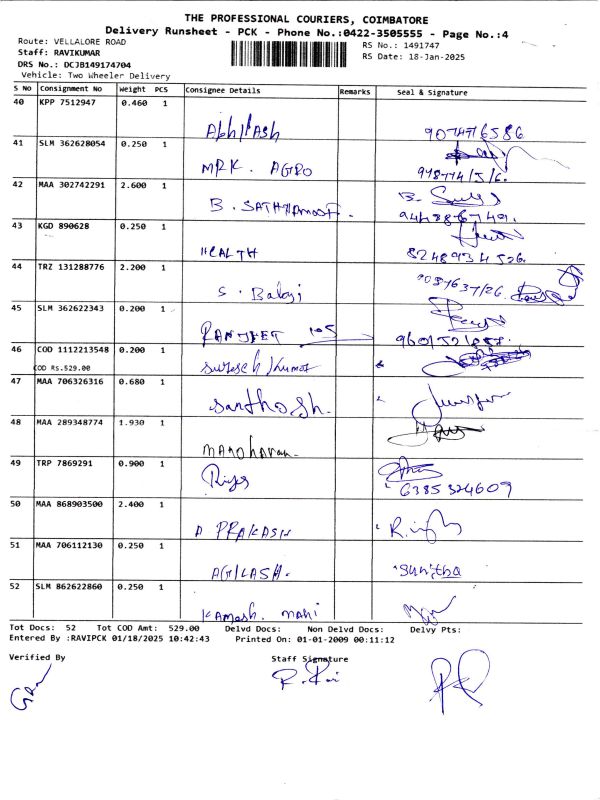 THE PROFESSIONAL COURIERS, COIMBATORE
Delivery Runsheet - PCK - Phone No.:0422-3505555 - Page No.:4
Route: VELLALORE ROAD
RS No.: 1491747
Staff: RAVIKUMAR
RS Date: 18-Jan-2025
DRS No.: DCJB149174704
Vehicle: Two Wheeler Delivery
S No Consignment No Weight PCS Consignee Details Remarks Seal & Signature
40 KPP 7512947 0.460 1
Abhilash
41 SLM 362628054 0.250 1
MRK. AGRO
42 MAA 302742291 2.600 1
43 KGD 890628 0.250 1
HEALTH 8248934526.
44 TRZ 131288776 2.200 1
S. Balaji
45 SLM 362622343 0.200 1
RANJEET
46 COD 1112213548 0.200 1
COD Rs.529.00
Suresh Kumar
47 MAA 706326316 0.680 1
Santhosh.
48 MAA 289348774 1.930 1
Manoharan
49 TRP 7869291 0.900 1
6385324609
50 MAA 868903500 2.400 1
A PRAKASH
51 MAA 706112130 0.250 1
AGILASH. Sunitha
52 SLM 862622860 0.250 1
Kamesh. Mani
Tot Docs: 52 Tot COD Amt: 529.00 Delvd Docs: Non Delvd Docs: Delvy Pts:
Entered By :RAVIPCK 01/18/2025 10:42:43 Printed On: 01-01-2009 00:11:12
Verified By Staff Signature